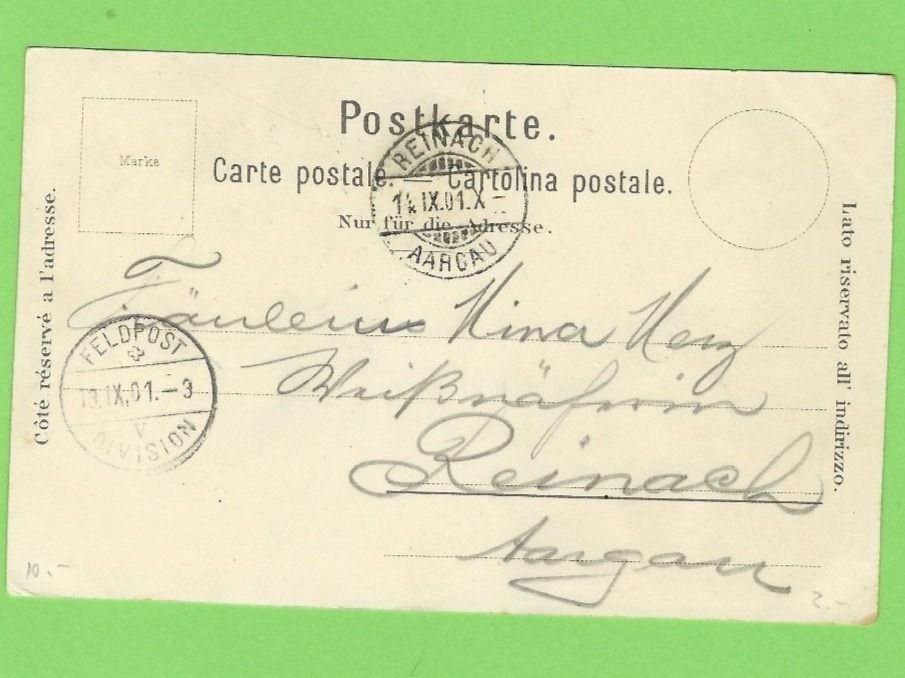 Postkarte.
Marke
Carte postale. — Cartolina postale.
Nur für die Adresse.
Côté réservé a l'adresse.
Lato riservato all' indirizzo.
REINACH
14.IX.01.X–
AARGAU
FELDPOST
13.IX.01.–3
V
DIVISION
Fräulein Nina Herz
Weißnäherin
Reinach
Aargau
10.–
2.–